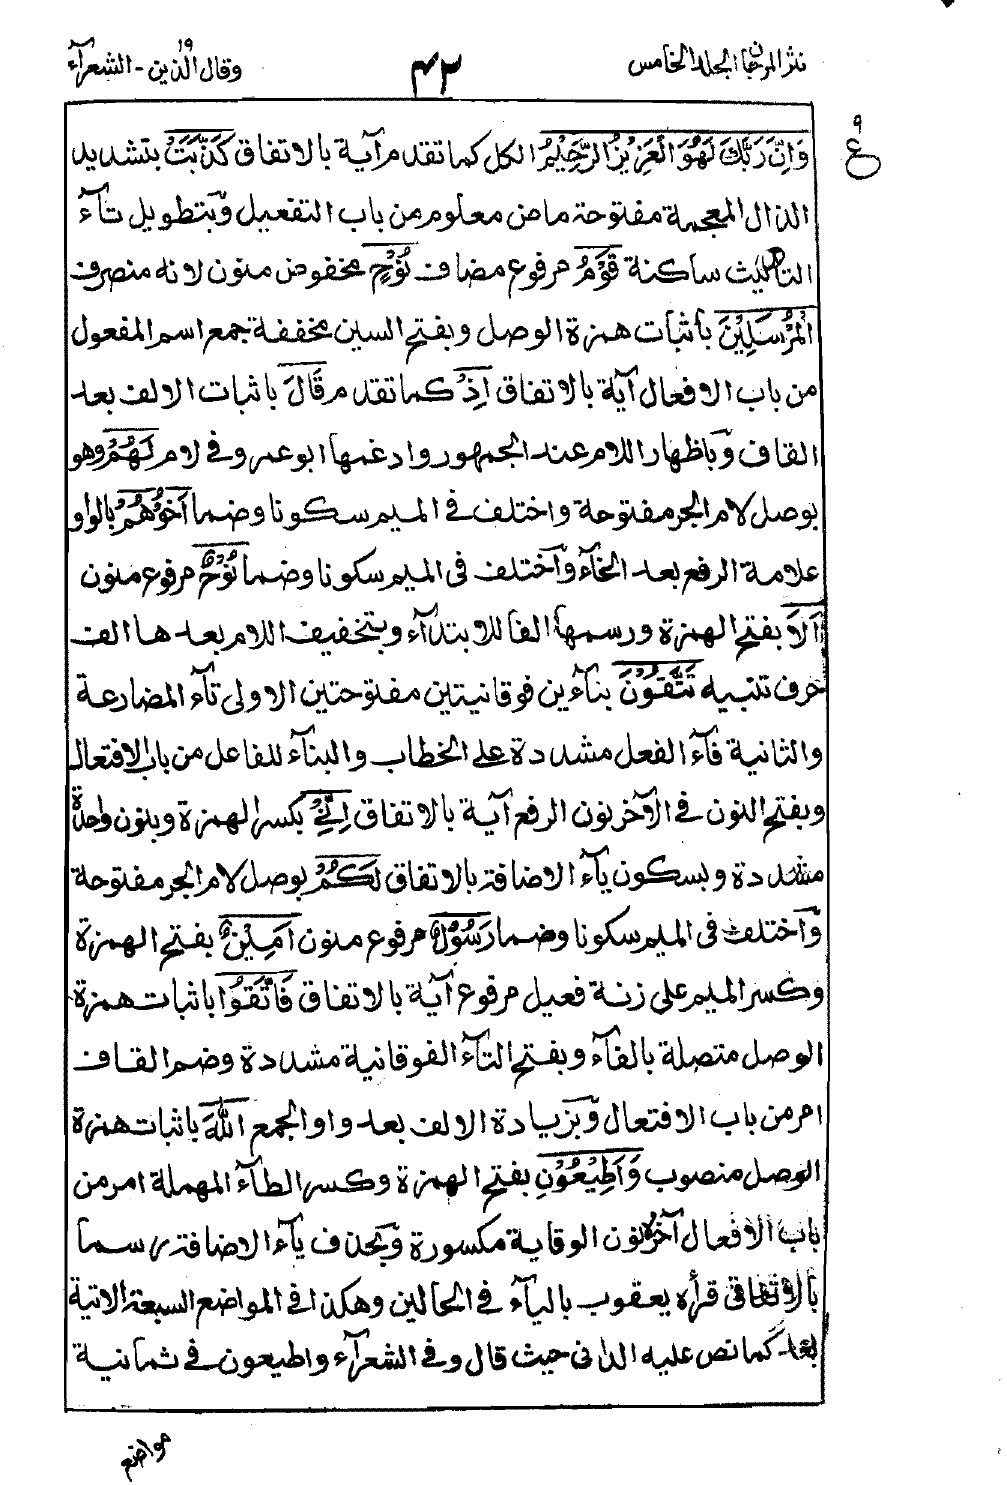 نثر المرجان الجلد الخامس
٤٢
وقال الذين ١٩ - الشعرآء
٩
ع
وَاِنَّ رَبَّكَ لَهُوَ الْعَزِيْزُ الرَّحِيْمُ الكل كما تقدم آية بالاتفاق كَذَّبَتْ بتشديد
الذال المعجمة مفتوحة ماض معلوم من باب التفعيل وبتطويل تآء
التانيث ساكنة قَوْمُ مرفوع مضاف نُوْحٍ مخفوض منون لانه منصرف
الْمُرْسَلِيْنَ باثبات همزة الوصل وبفتح السين مخففة جمع اسم المفعول
من باب الافعال آية بالاتفاق اِذْ كما تقدم قَالَ باثبات الالف بعد
القاف وباظهار اللام عند الجمهور وادغمها ابو عمرو في لام لَهُمْ وهو
بوصل لام الجر مفتوحة واختلف في الميم سكونا وضما اَخُوْهُمْ بالواو
علامة الرفع بعد الخآء واختلف في الميم سكونا وضما نُوْحٌ مرفوع منون
اَلَا بفتح الهمزة ورسمها الفا للابتدآء وبتخفيف اللام بعدها الف
حرف تنبيه تَتَّقُوْنَ بتآءين فوقانيتين مفتوحتين الاولى تآء المضارعة
والثانية فآء الفعل مشددة على الخطاب والبنآء للفاعل من باب الافتعال
وبفتح النون في الآخر نون الرفع آية بالاتفاق اِنِّيْ بكسر الهمزة وبنون واحدة
مشددة وبسكون يآء الاضافة بالاتفاق لَكُمْ بوصل لام الجر مفتوحة
واختلف في الميم سكونا وضما رَسُوْلٌ مرفوع منون اَمِيْنٌ بفتح الهمزة
وكسر الميم على زنة فعيل مرفوع آية بالاتفاق فَاتَّقُوا باثبات همزة
الوصل متصلة بالفآء وبفتح التآء الفوقانية مشددة وضم القاف
امر من باب الافتعال وبزيادة الالف بعد واو الجمع اللّٰهَ باثبات همزة
الوصل منصوب وَاَطِيْعُوْنِ بفتح الهمزة وكسر الطآء المهملة امر من
باب الافعال آخره نون الوقاية مكسورة وبحذف يآء الاضافة رسما
بالاتفاق قرأه يعقوب باليآء في الحالين وهكذا في المواضع السبعة الاتية
بعد كما نص عليه الداني حيث قال وفي الشعرآء واطيعون في ثمانية
مواضع